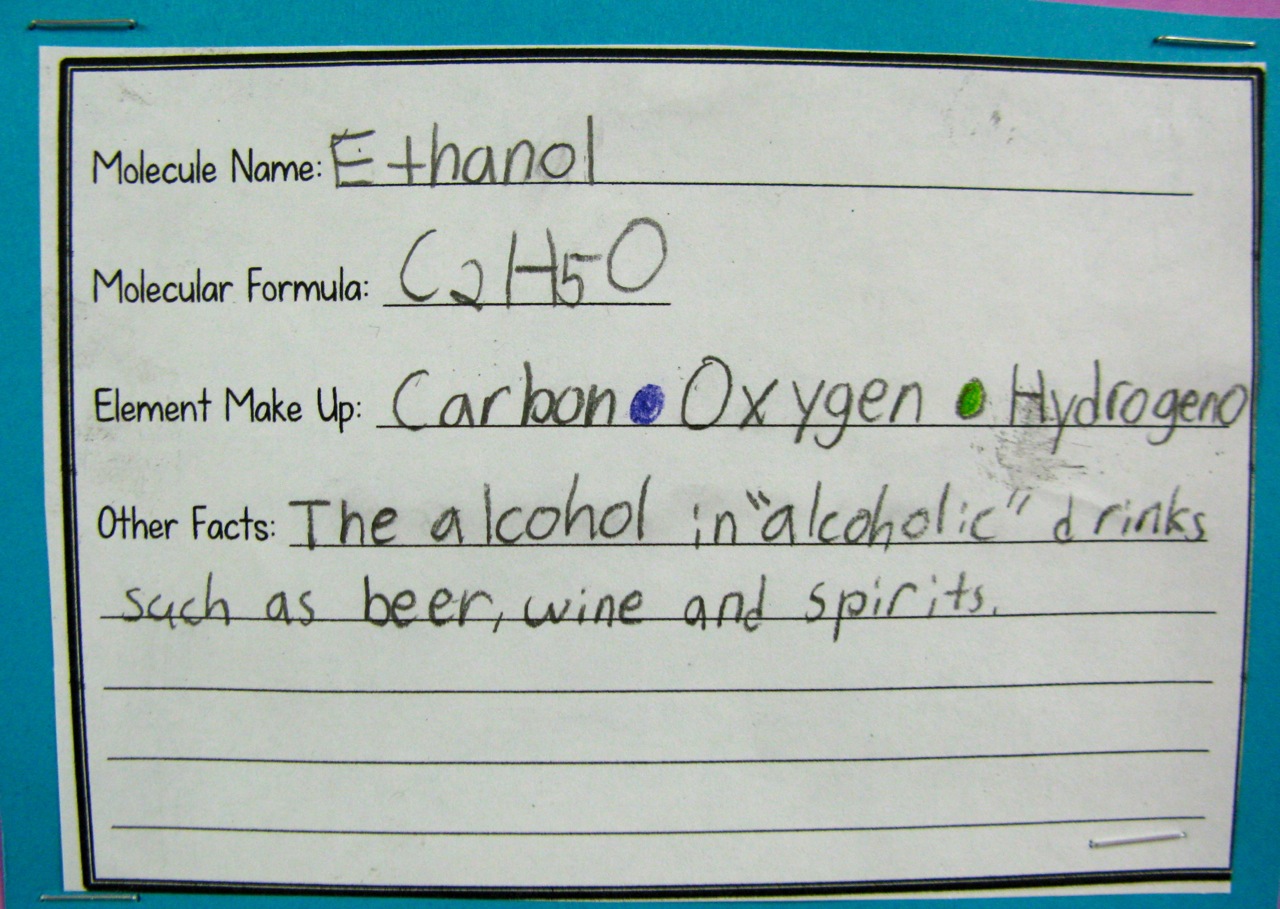 Molecule Name: Ethanol
Molecular Formula: C2H5O
Element Make Up: Carbon Oxygen Hydrogen
Other Facts: The alcohol in "alcoholic" drinks
such as beer, wine and spirits.